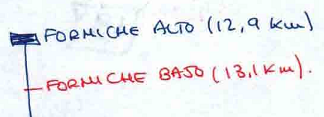 FORMICHE ALTO (12,9 Km)
FORMICHE BAJO (13,1 Km).